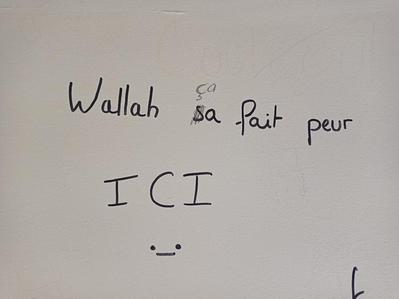 Wallah ça sa fait peur
ICI